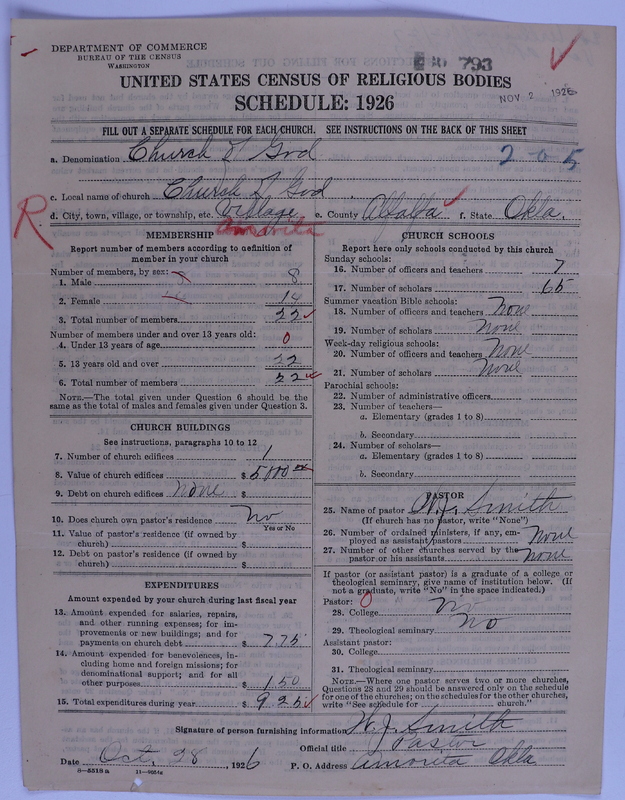 DEPARTMENT OF COMMERCE
BUREAU OF THE CENSUS
WASHINGTON
793
NOV 2 1926
UNITED STATES CENSUS OF RELIGIOUS BODIES
SCHEDULE: 1926
FILL OUT A SEPARATE SCHEDULE FOR EACH CHURCH. SEE INSTRUCTIONS ON THE BACK OF THIS SHEET
a. Denomination Church of God
2-0-5
c. Local name of church Church of God
R.
d. City, town, village, or township, etc. Village e. County Alfalfa f. State Okla.
Amorita
MEMBERSHIP
Report number of members according to definition of
member in your church
Number of members, by sex:
1. Male 8
2. Female 14
3. Total number of members 22
Number of members under and over 13 years old:
4. Under 13 years of age 0
5. 13 years old and over 22
6. Total number of members 22
NOTE.—The total given under Question 6 should be the
same as the total of males and females given under Question 3.
CHURCH BUILDINGS
See instructions, paragraphs 10 to 12
7. Number of church edifices 1
8. Value of church edifices $ 5000
9. Debt on church edifices none $
10. Does church own pastor's residence no
Yes or No
11. Value of pastor's residence (if owned by
church) $
12. Debt on pastor's residence (if owned by
church) $
EXPENDITURES
Amount expended by your church during last fiscal year
13. Amount expended for salaries, repairs,
and other running expenses; for im-
provements or new buildings; and for
payments on church debt $ 775
14. Amount expended for benevolences, in-
cluding home and foreign missions; for
denominational support; and for all
other purposes $ 150
15. Total expenditures during year $ 925
CHURCH SCHOOLS
Report here only schools conducted by this church
Sunday schools:
16. Number of officers and teachers 7
17. Number of scholars 65
Summer vacation Bible schools:
18. Number of officers and teachers None
19. Number of scholars None
Week-day religious schools:
20. Number of officers and teachers None
21. Number of scholars None
Parochial schools:
22. Number of administrative officers
23. Number of teachers—
a. Elementary (grades 1 to 8)
b. Secondary
24. Number of scholars—
a. Elementary (grades 1 to 8)
b. Secondary
PASTOR
25. Name of pastor W. J. Smith
(If church has no pastor, write "None")
26. Number of ordained ministers, if any, em-
ployed as assistant pastors None
27. Number of other churches served by the
pastor or his assistants none
If pastor (or assistant pastor) is a graduate of a college or
theological seminary, give name of institution below. (If
not a graduate, write "No" in the space indicated.)
Pastor: 0
28. College No
29. Theological seminary No
Assistant pastor:
30. College
31. Theological seminary
NOTE.—Where one pastor serves two or more churches,
Questions 28 and 29 should be answered only on the schedule
for one of the churches; on the schedules for the other churches,
write "See schedule for church."
Signature of person furnishing information W. J. Smith
Official title Pastor
Date Oct. 28, 1926 P. O. Address Amorita Okla
8—5518a